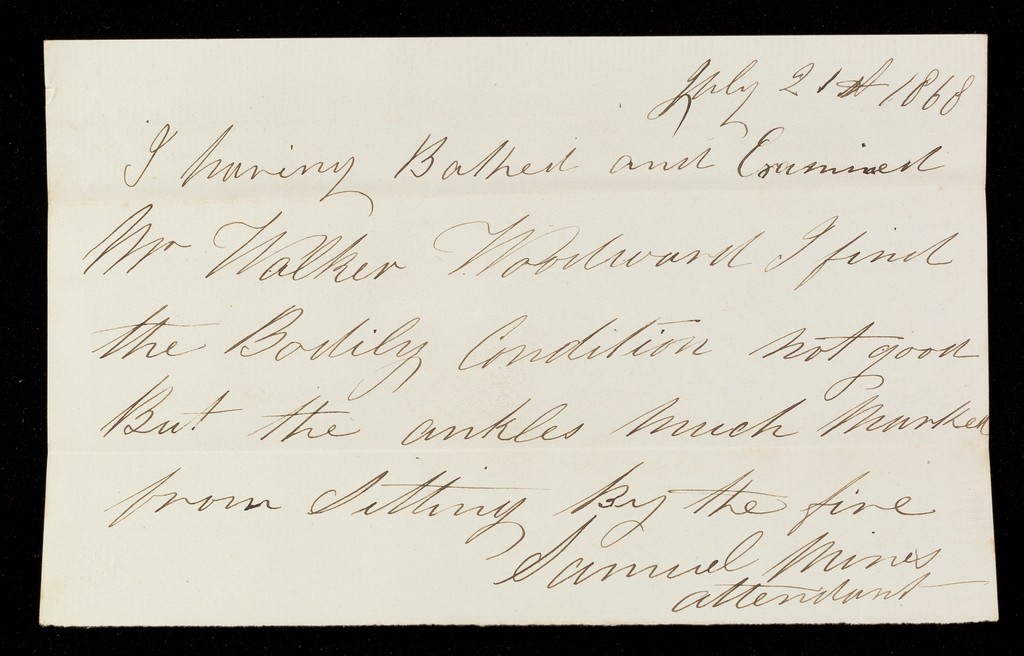 July 21st 1868
I having Bathed and Examined
Mr Walker Woodward I find
the Bodily Condition not good
But the ankles much Marked
from Sitting By the fire
Samuel Mines
attendant